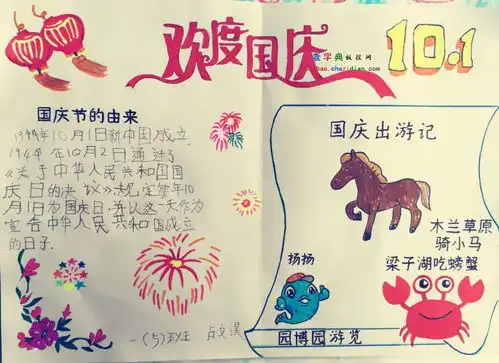 欢度国庆
查字典手抄报网
bao.chazidian.com
10.1
国庆节的由来
1949年10月1日新中国成立,
1949年10月2日通过了
《关于中华人民共和国国
庆日的决议》,规定每年10
月1日为国庆日,并以这一天作为
宣告中华人民共和国成立
的日子。
一(5)班
国庆出游记
木兰草原
骑小马
扬扬
梁子湖吃螃蟹
园博园游览